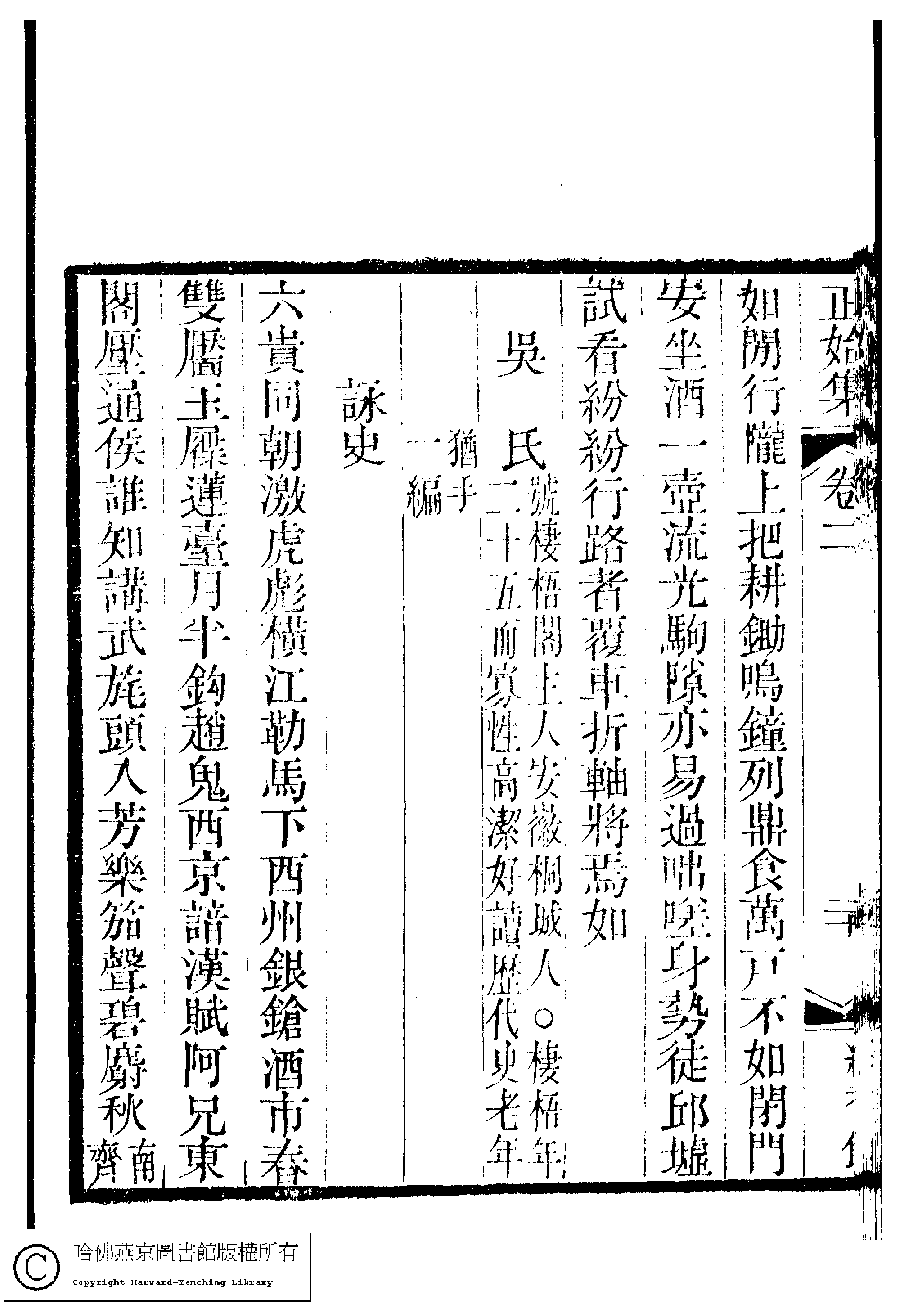 正始集 卷二 二
如閒行隴上把耕鋤鳴鐘列鼎食萬戸不如閉門
安坐酒一壺流光駒隙亦易過咄嗟身勢徒邱墟
試看紛紛行路者覆車折軸將焉如
吳 氏
號棲梧閣主人安徽桐城人○棲梧年
二十五而寡性高潔好讀歷代史老年
猶手
一編
詠史
六貴同朝激虎彪橫江勒馬下西州銀鎗酒市春
雙靨玉屧蓮臺月半鈎趙鬼西京諳漢賦阿兄東
閣壓通侯誰知講武旄頭入芳樂笳聲碧麝秋
南
齊
哈佛燕京圖書館版權所有
Copyright Harvard-Yenching Library